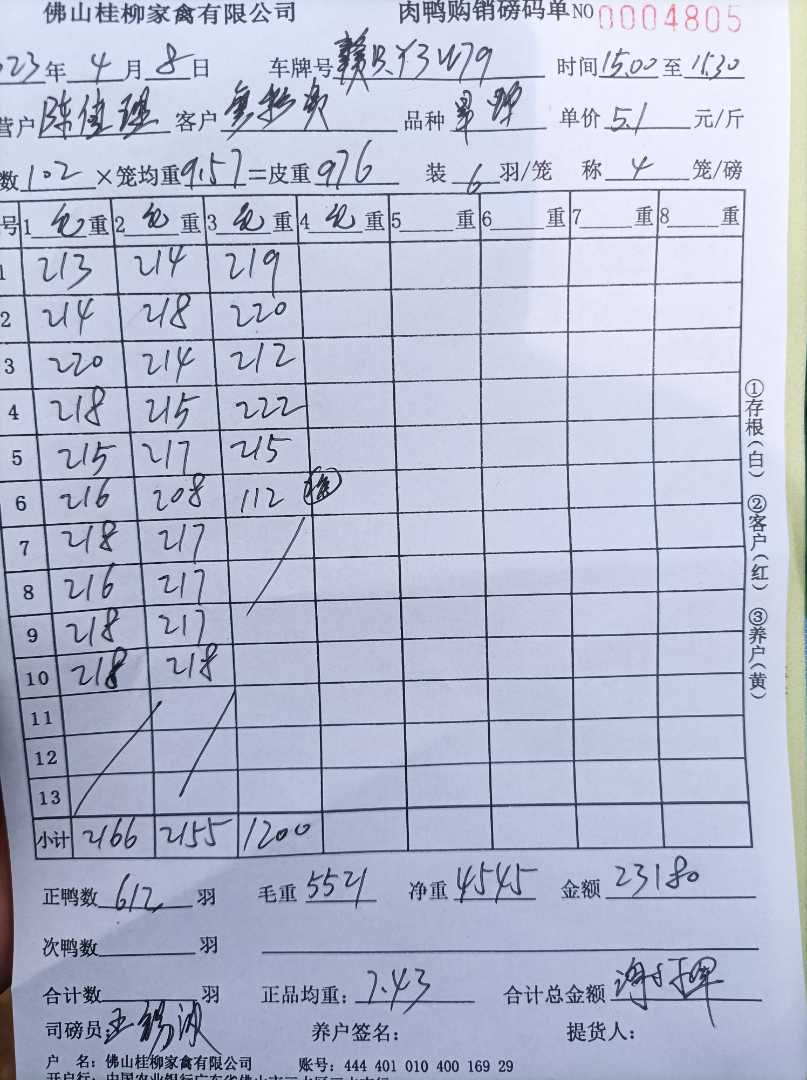 佛山桂柳家禽有限公司 肉鸭购销磅码单 NO 0004805
023年 4 月 8 日 车牌号 赣 时间 15.00 至 15.30
营户 陈佳 客户 品种 单价 5.1 元/斤
数 102 ×笼均重 9.57 =皮重 976 装 6 羽/笼 称 4 笼/磅
号 1 毛 重 2 毛 重 3 毛 重 4 毛 重 5 重 6 重 7 重 8 重
1 213 214 219
2 214 218 220
3 220 214 212
4 218 215 222
5 215 217 215
6 216 208 112
7 218 217
8 216 217
9 218 217
10 218 218
11
12
13
小计 2166 2155 1200
①存根(白) ②客户(红) ③养户(黄)
正鸭数 612 羽 毛重 5521 净重 4545 金额 23180
次鸭数 羽
合计数 羽 正品均重: 7.43 合计总金额
司磅员: 王锡 养户签名: 提货人:
户 名: 佛山桂柳家禽有限公司 账号: 444 401 010 400 169 29